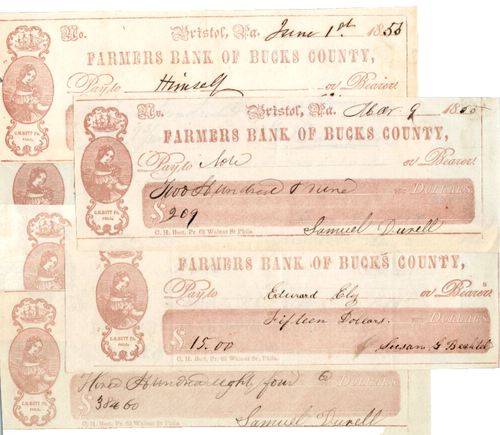 No. Bristol, Pa. June 1st 1855
FARMERS BANK OF BUCKS COUNTY,
Pay to Himself or Bearer
C.H. BUTT PR. PHILA.
No. Bristol, Pa. Mar 9 1855
FARMERS BANK OF BUCKS COUNTY,
Pay to Note or Bearer
Two Hundred & nine Dollars
$ 209
C. H. Butt, Pr. 62 Walnut St Phila
Samuel Durell
FARMERS BANK OF BUCKS COUNTY,
Pay to Edward Ely or Bearer
Fifteen Dollars.
$ 15.00
C. H. Butt, Pr. 62 Walnut St. Phila.
Susan G
Three Hundred eight four Dollars
$ 384 60
Samuel Durell